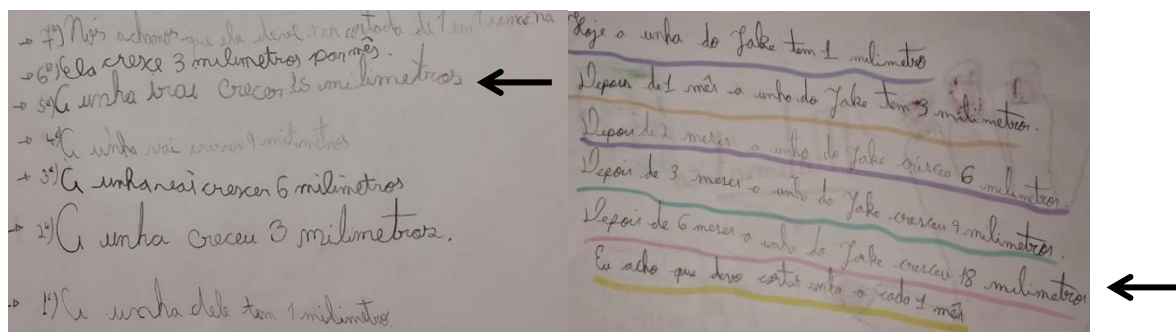 → 7º) Nois achamos que ela deve ser cortada de 1 em 1 semana
→ 6º) ela crese 3 milimetros por mês.
→ 5º) A unha vrai crecer 18 milimetros
→ 4º) A unha vai crecer 9 milimetros
→ 3º) A unha vai crescer 6 milimetros
→ 2º) A unha creceu 3 milimetros.
→ 1º) A unha dele tem 1 milimetro.
Hoje a unha do Jake tem 1 milimetro
Depois de 1 mês a unha do Jake tem 3 milimetros.
Depois de 2 meses a unha do Jake cresceu 6 milimetros.
Depois de 3 meses a unha do Jake cresceu 9 milimetros.
Depois de 6 meses a unha do Jake cresceu 18 milimetros
Eu acho que devo cortar unha a cada 1 mês